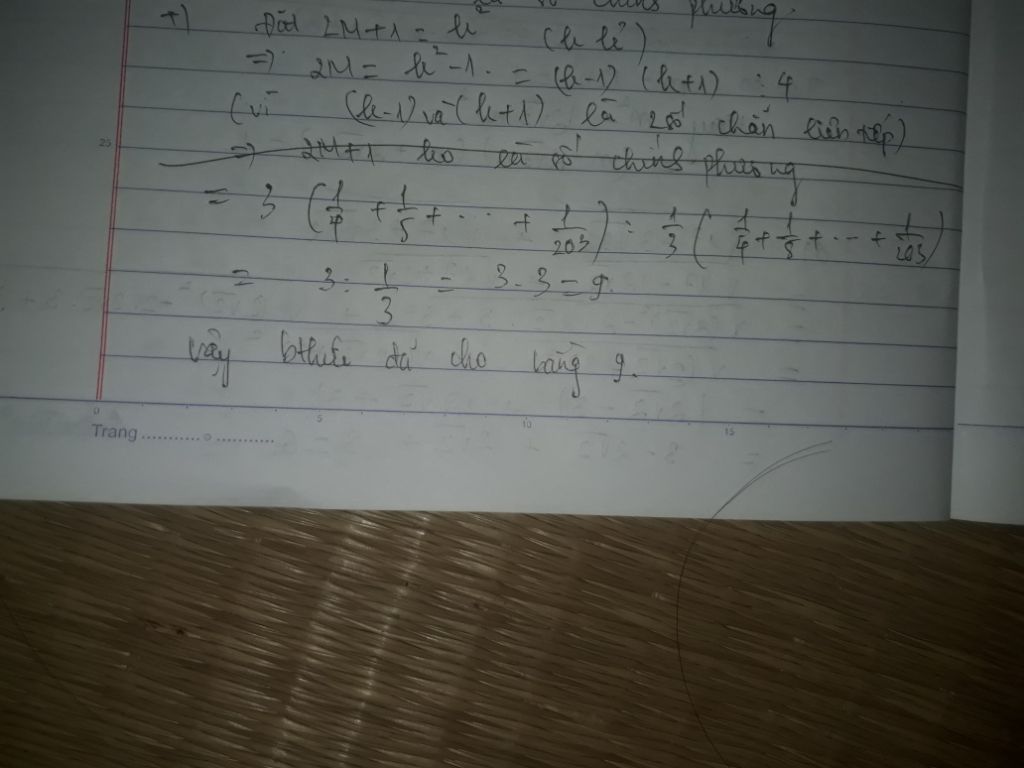 chính phương.
+) Đặt 2M+1 = k² (k lẻ)
=> 2M = k² - 1. = (k-1) (k+1) ⋮ 4
(vì (k-1) và (k+1) là 2 số chẵn liên tiếp)
25
=> 2M+1 ko là số chính phương
= 3 (1/4 + 1/5 + ... + 1/203) : 1/3 (1/4 + 1/5 + ... + 1/203)
= 3 : 1/3 = 3 . 3 = 9.
Vậy bthức đã cho bằng 9.
0 5 10 15
Trang ........... o ...........